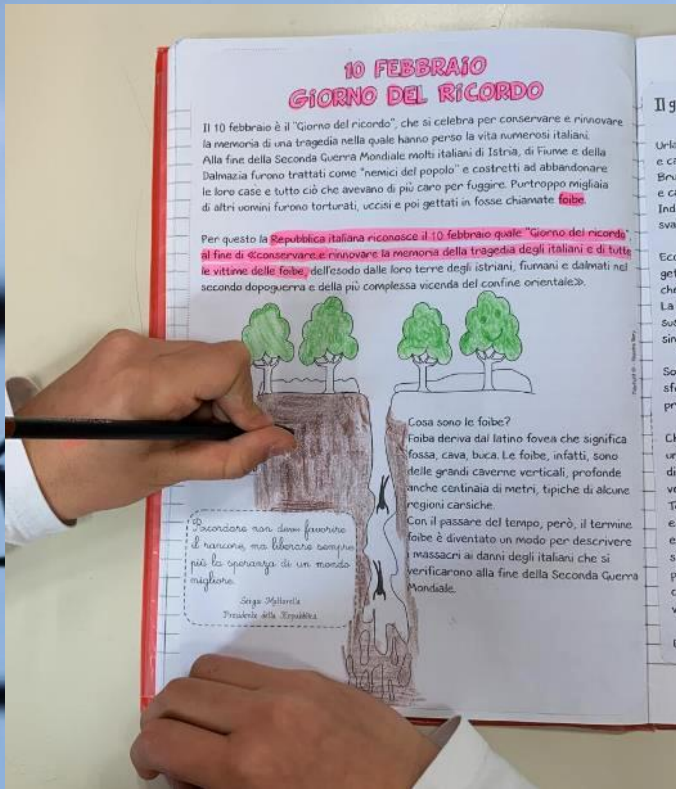 10 FEBBRAIO
GIORNO DEL RICORDO
Il 10 febbraio è il "Giorno del ricordo", che si celebra per conservare e rinnovare
la memoria di una tragedia nella quale hanno perso la vita numerosi italiani.
Alla fine della Seconda Guerra Mondiale molti italiani di Istria, di Fiume e della
Dalmazia furono trattati come "nemici del popolo" e costretti ad abbandonare
le loro case e tutto ciò che avevano di più caro per fuggire. Purtroppo migliaia
di altri uomini furono torturati, uccisi e poi gettati in fosse chiamate foibe.
Per questo la Repubblica italiana riconosce il 10 febbraio quale "Giorno del ricordo",
al fine di «conservare e rinnovare la memoria della tragedia degli italiani e di tutte
le vittime delle foibe, dell'esodo dalle loro terre degli istriani, fiumani e dalmati nel
secondo dopoguerra e della più complessa vicenda del confine orientale».
Cosa sono le foibe?
Foiba deriva dal latino fovea che significa
fossa, cava, buca. Le foibe, infatti, sono
delle grandi caverne verticali, profonde
anche centinaia di metri, tipiche di alcune
regioni carsiche.
Con il passare del tempo, però, il termine
foibe è diventato un modo per descrivere
i massacri ai danni degli italiani che si
verificarono alla fine della Seconda Guerra
Mondiale.
Ricordare non deve favorire
il rancore, ma liberare sempre
più la speranza di un mondo
migliore.
Sergio Mattarella
Presidente della Repubblica
Il g